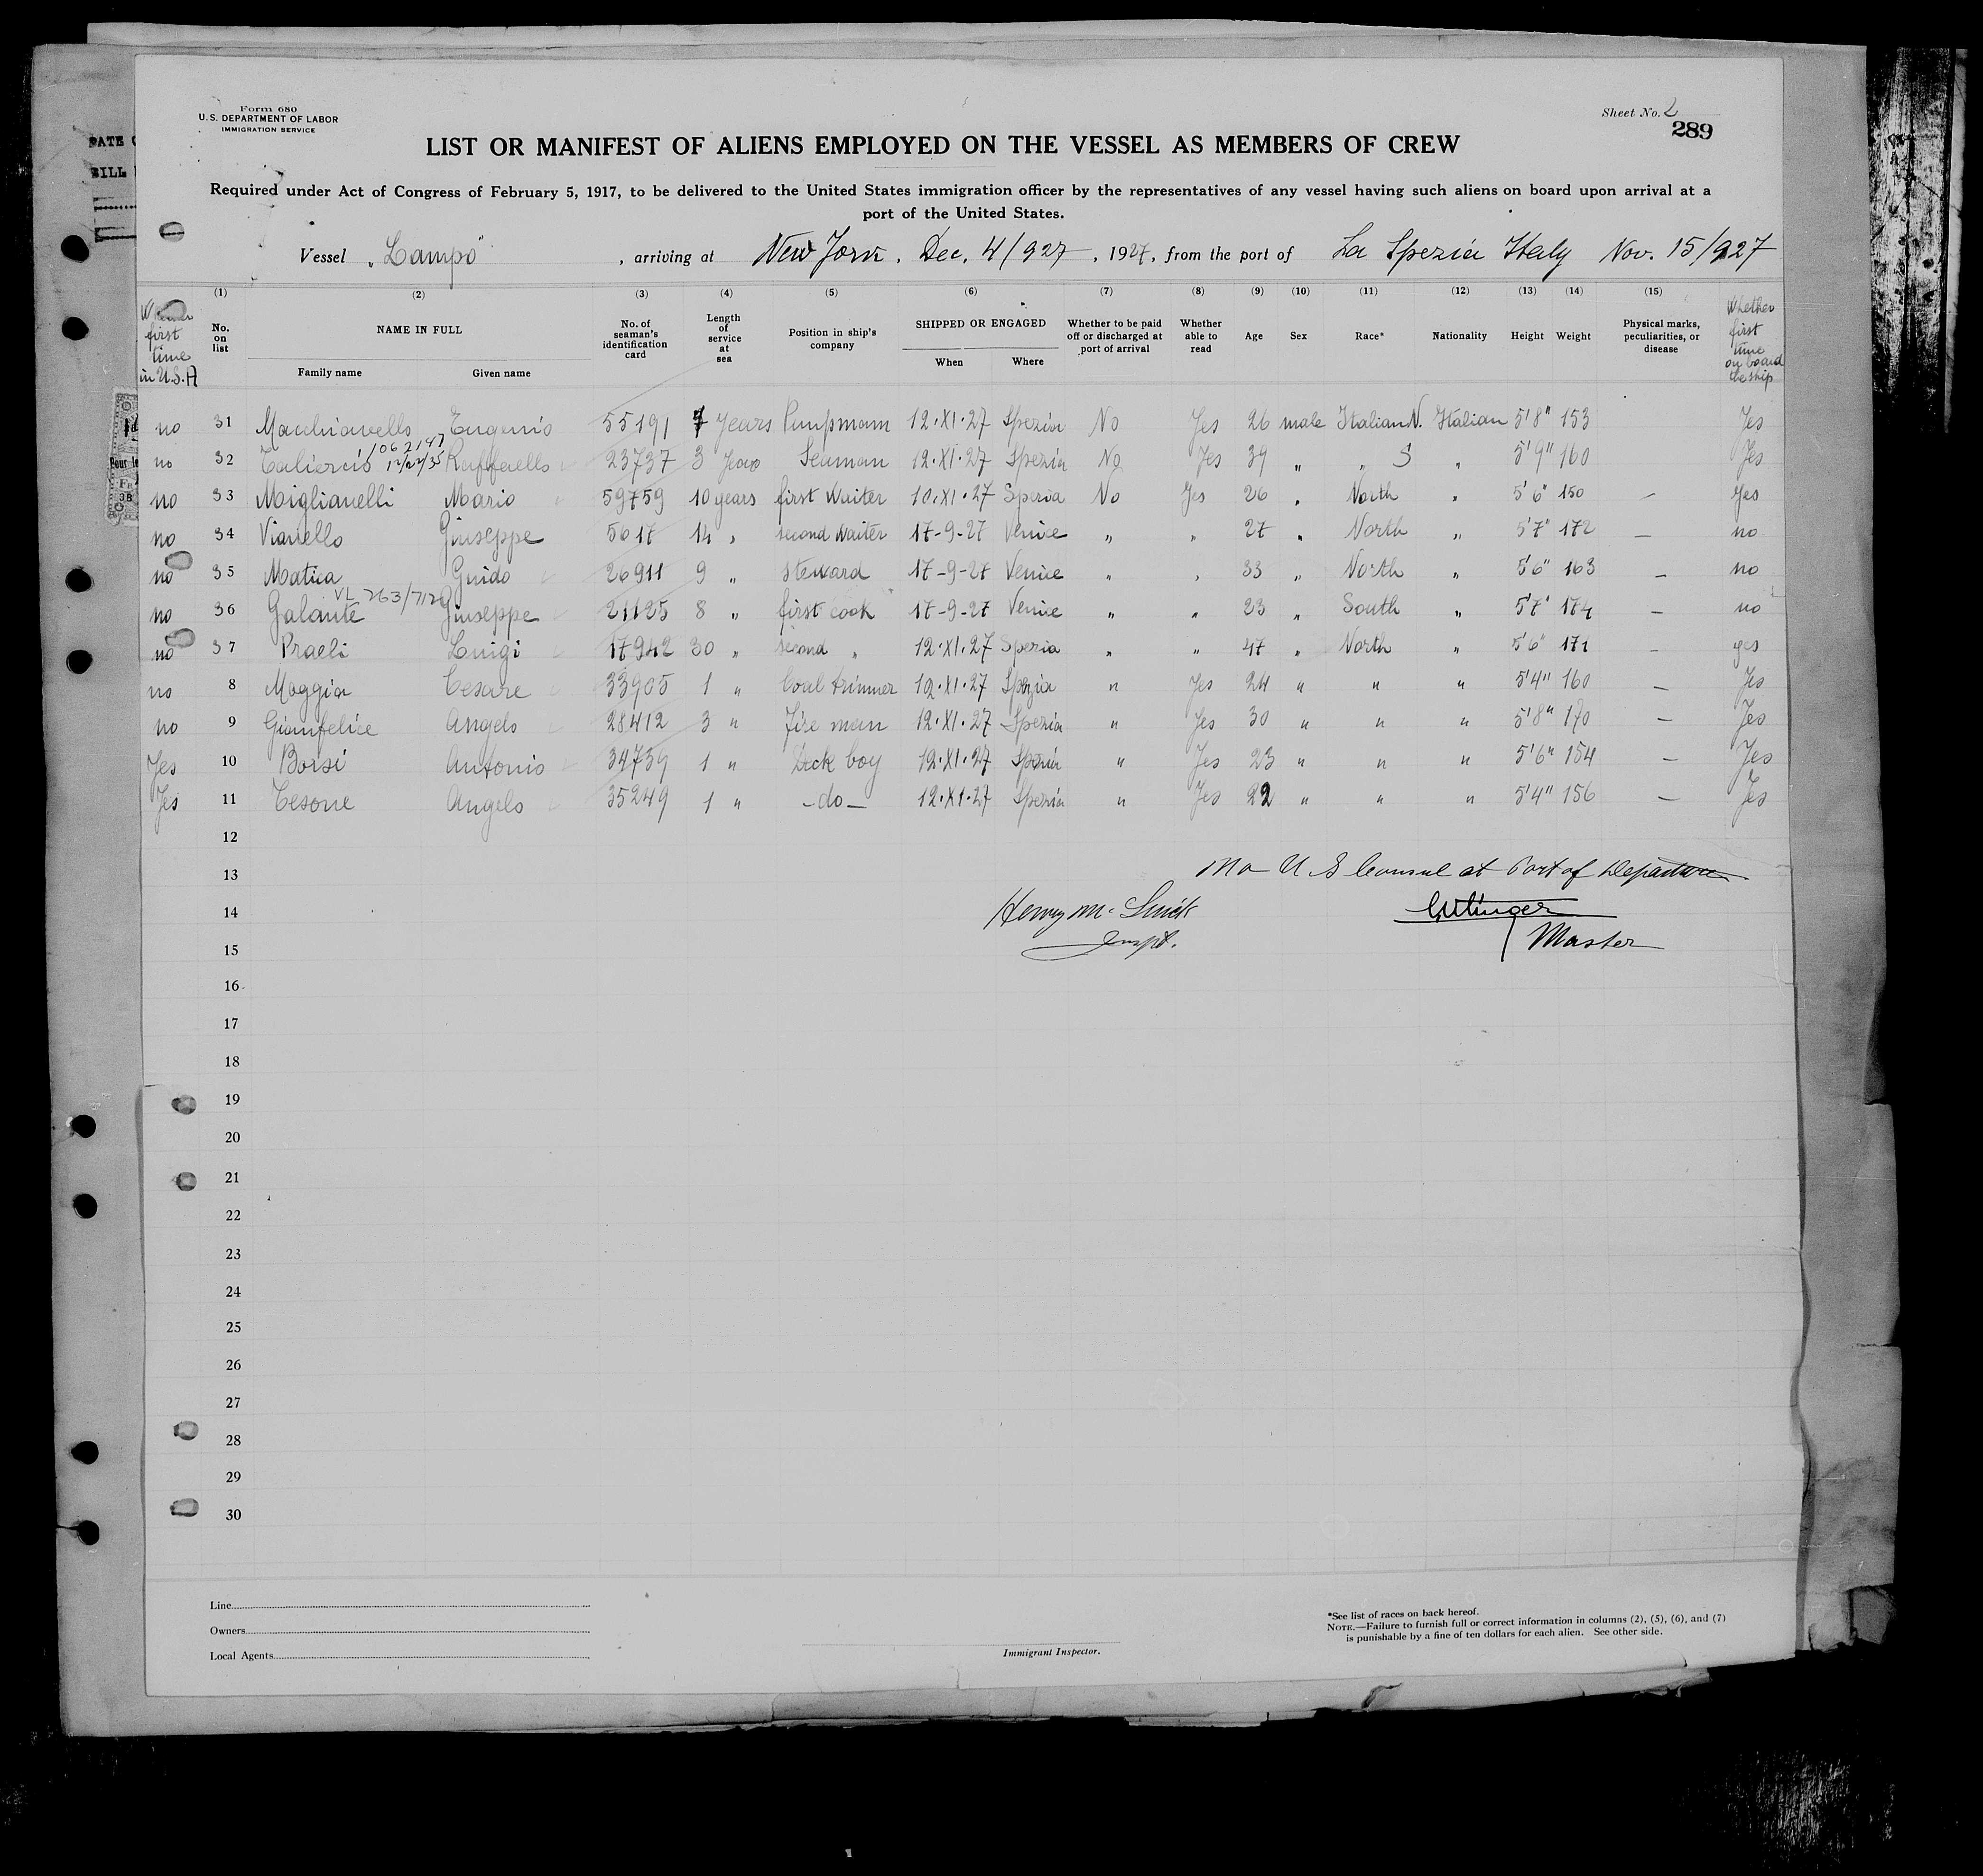 Form 680
U.S. DEPARTMENT OF LABOR
IMMIGRATION SERVICE
Sheet No. 2
289
LIST OR MANIFEST OF ALIENS EMPLOYED ON THE VESSEL AS MEMBERS OF CREW
Required under Act of Congress of February 5, 1917, to be delivered to the United States immigration officer by the representatives of any vessel having such aliens on board upon arrival at a
port of the United States.
Vessel „Lampo", arriving at New Jorn. Dec. 4/927, 1927, from the port of La Spezia Italy Nov. 15/927
Whether first time in U.S.A (1) No. on list (2) NAME IN FULL Family name Given name (3) No. of seaman's identification card (4) Length of service at sea (5) Position in ship's company (6) SHIPPED OR ENGAGED When Where (7) Whether to be paid off or discharged at port of arrival (8) Whether able to read (9) Age (10) Sex (11) Race* (12) Nationality (13) Height (14) Weight (15) Physical marks, peculiarities, or disease Whether first time on board the ship
no 31 Macchiavello Eugenio 55191 7 Years Pumpmann 12·XI·27 Spezia No Yes 26 male Italian N. Italian 5'8" 153 Yes
1062147
no 32 Taliercio 12/22/35 Raffaello 23737 3 Years Seaman 12·XI·27 Spezia No Yes 39 „ „ S „ 5'9" 160 Yes
no 33 Miglianelli Mario 59759 10 years first Waiter 10·XI·27 Spezia No Yes 26 „ North „ 5'6" 150 — Yes
no 34 Vianello Giuseppe 5617 14 „ second Waiter 17-9-27 Venice „ „ 27 „ North „ 5'7" 172 — no
no 35 Matica Guido 26911 9 „ Steward 17-9-27 Venice „ „ 33 „ North „ 5'6" 163 — no
VL 263/712
no 36 Galante Giuseppe 21125 8 „ first cook 17-9-27 Venice „ „ 23 „ South „ 5'7" 174 — no
no 37 Praeli Luigi 17942 30 „ second „ 12·XI·27 Spezia „ „ 47 „ North „ 5'6" 171 — yes
no 8 Maggia Cesare 33905 1 „ Coal trimmer 12·XI·27 Spezia „ Yes 24 „ „ „ 5'4" 160 — Yes
no 9 Gianfelice Angelo 28412 3 „ Fire man 12·XI·27 Spezia „ Yes 30 „ „ „ 5'8" 170 — Yes
Yes 10 Borsi Antonio 34739 1 „ Deck boy 12·XI·27 Spezia „ Yes 23 „ „ „ 5'6" 154 — Yes
Yes 11 Cesone Angelo 35249 1 „ —do— 12·XI·27 Spezia „ Yes 22 „ „ „ 5'4" 156 — Yes
12
13 No U S Consul at Port of Departure
14 Henry Mc
15 Inspt. Master
16
17
18
19
20
21
22
23
24
25
26
27
28
29
30
Line
Owners
Local Agents
Immigrant Inspector.
*See list of races on back hereof.
NOTE.—Failure to furnish full or correct information in columns (2), (5), (6), and (7)
is punishable by a fine of ten dollars for each alien. See other side.